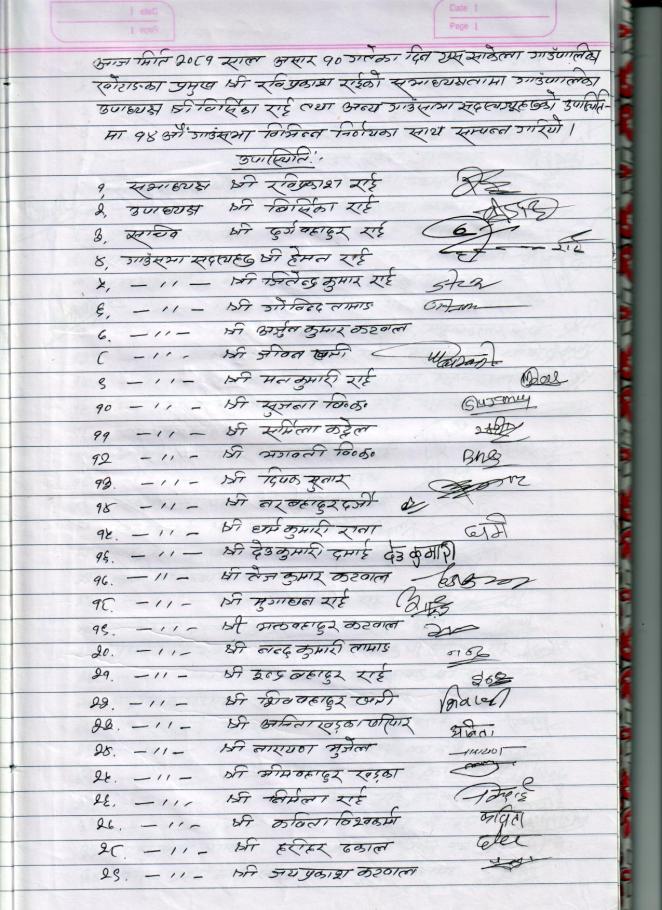 Date |
Page |
आज मिति २०८१ साल असार १० गतेका दिन यस साकेला गाउँपालिका
खोटाङका प्रमुख श्री रविप्रकाश राईको सभाध्यक्षतामा गाउँपालिका
उपाध्यक्ष श्री विर्सिका राई तथा अन्य गाउँसभा सदस्यहरुको उपस्थिति-
मा १४ औं गाउँसभा विभिन्न निर्णयका साथ सम्पन्न गरियो ।
उपस्थिति:-
१, सभाध्यक्ष श्री रविप्रकाश राई
२, उपाध्यक्ष श्री विर्सिका राई
३, सचिव श्री दुर्गबहादुर राई
४, गाउँसभा सदस्यहरु श्री हेमन राई
५, - ,, - श्री जितेन्द्र कुमार राई
६, - ,, - श्री गोविन्द तामाङ
७. - ,, - श्री अर्जुन कुमार कटवाल
८ - ,, - श्री जीवन खत्री
९ - ,, - श्री मनकुमारी राई
१० - ,, - श्री सृजना वि.क.
११ - ,, - श्री सर्मिला कट्टेल
१२ - ,, - श्री भगवती वि.क.
१३. - ,, - श्री दिपक सुनार
१४ - ,, - श्री नरबहादुर दर्जी
१५. - ,, - श्री धर्मकुमारी राना धर्म
१६. - ,, - श्री देउकुमारी दमाई देउकुमारी
१७. - ,, - श्री तेज कुमार कटवाल
१८. - ,, - श्री मुगाधन राई
१९. - ,, - श्री भक्तबहादुर कटवाल
२०. - ,, - श्री नन्दकुमारी तामाङ नन्द
२१. - ,, - श्री इन्द्र बहादुर राई इन्द्र
२२. - ,, - श्री शिवबहादुर खत्री
२३. - ,, - श्री अनिता खड्का परियार अनिता
२४. - ,, - श्री नारायण भुजेल
२५. - ,, - श्री भीमबहादुर खड्का
२६. - ,, - श्री निर्मला राई
२७ - ,, - श्री कविता विश्वकर्मा कविता
२८ - ,, - श्री हरिहर ढकाल
२९. - ,, - श्री जयप्रकाश कटवाल